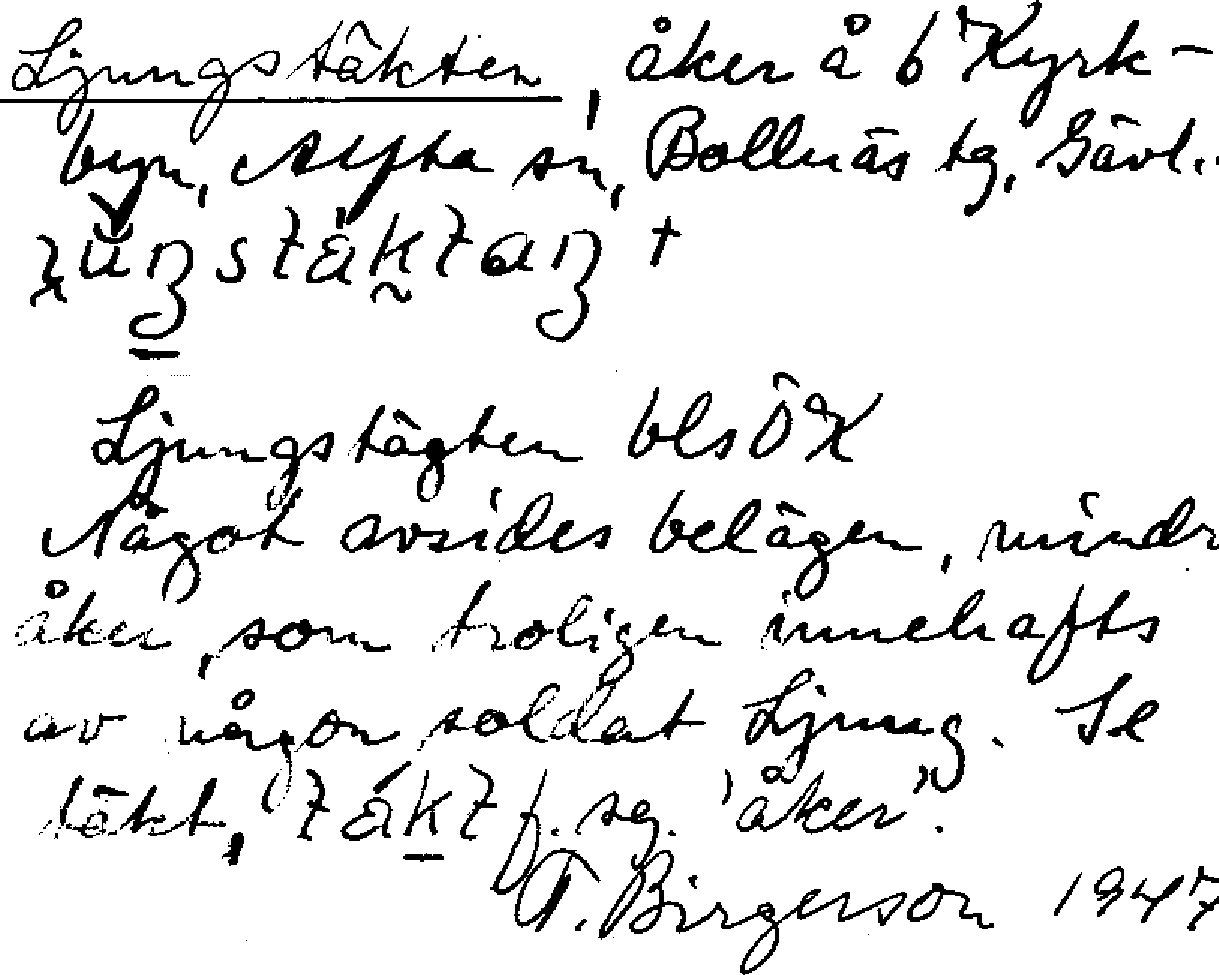 Ljungstäkten, åker å 6 Kyrk-
byn, Alfta sn, Bollnäs tg, Gävl.
Ljungstägten bls ÖK
Något avsides belägen, mindr
åker, som troligen innehafts
av någon soldat Ljung. Se
täkt, f. sg. 'åker'.
T. Birgerson 1947